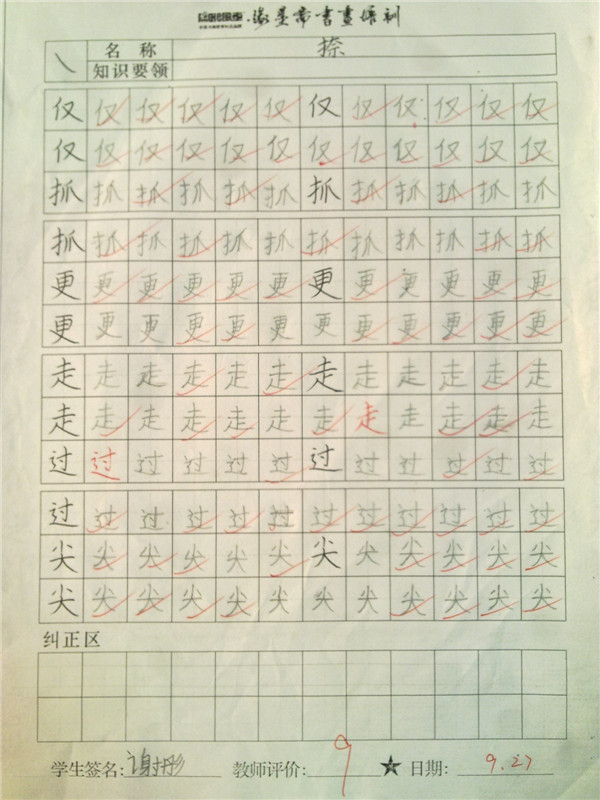 书画培训
名称 捺
㇏
知识要领
仅 仅 仅 仅 仅 仅 仅 仅 仅 仅 仅 仅
仅 仅 仅 仅 仅 仅 仅 仅 仅 仅 仅 仅
抓 抓 抓 抓 抓 抓 抓 抓 抓 抓 抓 抓
抓 抓 抓 抓 抓 抓 抓 抓 抓 抓 抓 抓
更 更 更 更 更 更 更 更 更 更 更 更
更 更 更 更 更 更 更 更 更 更 更 更
走 走 走 走 走 走 走 走 走 走 走 走
走 走 走 走 走 走 走 走 走 走 走 走
过 过 过 过 过 过 过 过 过 过 过 过
过 过 过 过 过 过 过 过 过 过 过 过
尖 尖 尖 尖 尖 尖 尖 尖 尖 尖 尖 尖
尖 尖 尖 尖 尖 尖 尖 尖 尖 尖 尖 尖
纠正区
学生签名:谢彤 教师评价:9 ★ 日期:9.27